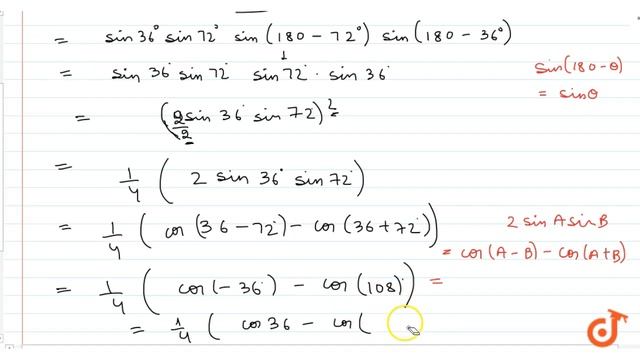 = sin 36° sin 72° sin (180 - 72°) sin (180 - 36°)
= sin 36° sin 72° sin 72° · sin 36°
sin (180 - θ)
= sin θ
= (2/2 sin 36° sin 72)²
= 1/4 ( 2 sin 36° sin 72° )
= 1/4 ( cos (36 - 72°) - cos (36 + 72°))
2 sin A sin B
= cos (A - B) - cos (A + B)
= 1/4 ( cos (- 36°) - cos (108°) )
=
= 1/4 ( cos 36 - cos (
doubtnut